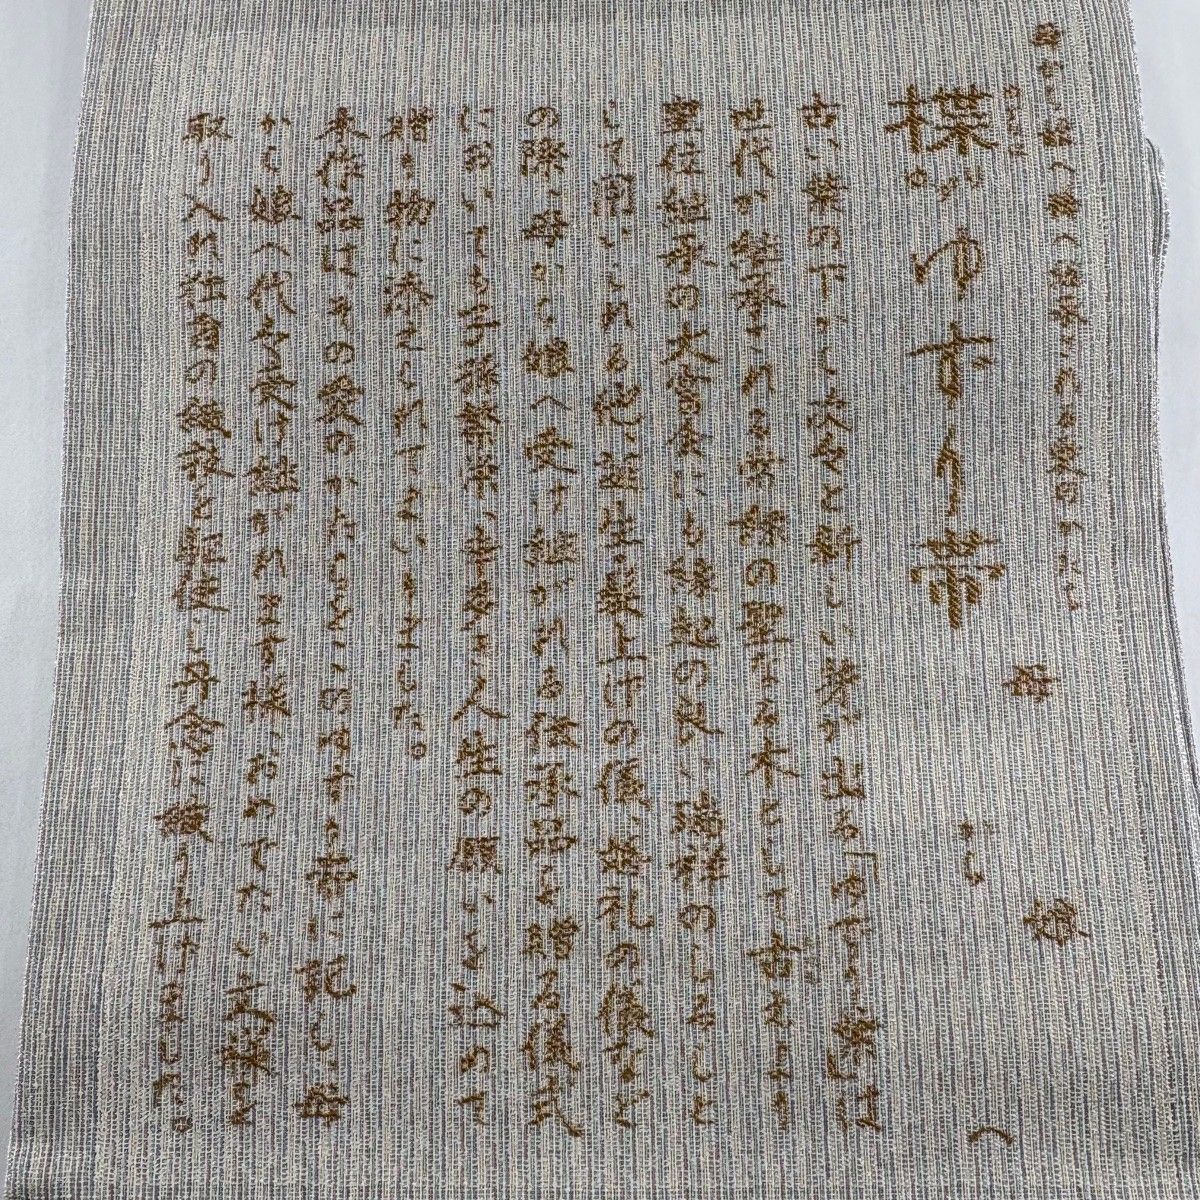 母から娘へ娘へ伝承される愛のかたち
母から娘へ
ゆずりは
楪がゆずり帯
古い葉の下から次々と新しい芽が出る「ゆずり葉」は
世代が継承される常緑の聖なる木として古えより
皇位継承の大嘗会にも縁起の良い瑞祥のしるしと
して用いられる他、誕生・髪上げの儀、婚礼の儀など
の際、母から娘へ受け継がれる伝承品を贈る儀式
においても子孫繁栄、幸多き人生の願いを込めて
贈り物に添えられてまいりました。
本作品はその愛のかたちをこのゆずり帯に記し、母
から娘へ代々と受け継がれます様、おめでたい文様を
取り入れ往昔の儀を軽度に丹念に織り上げました。